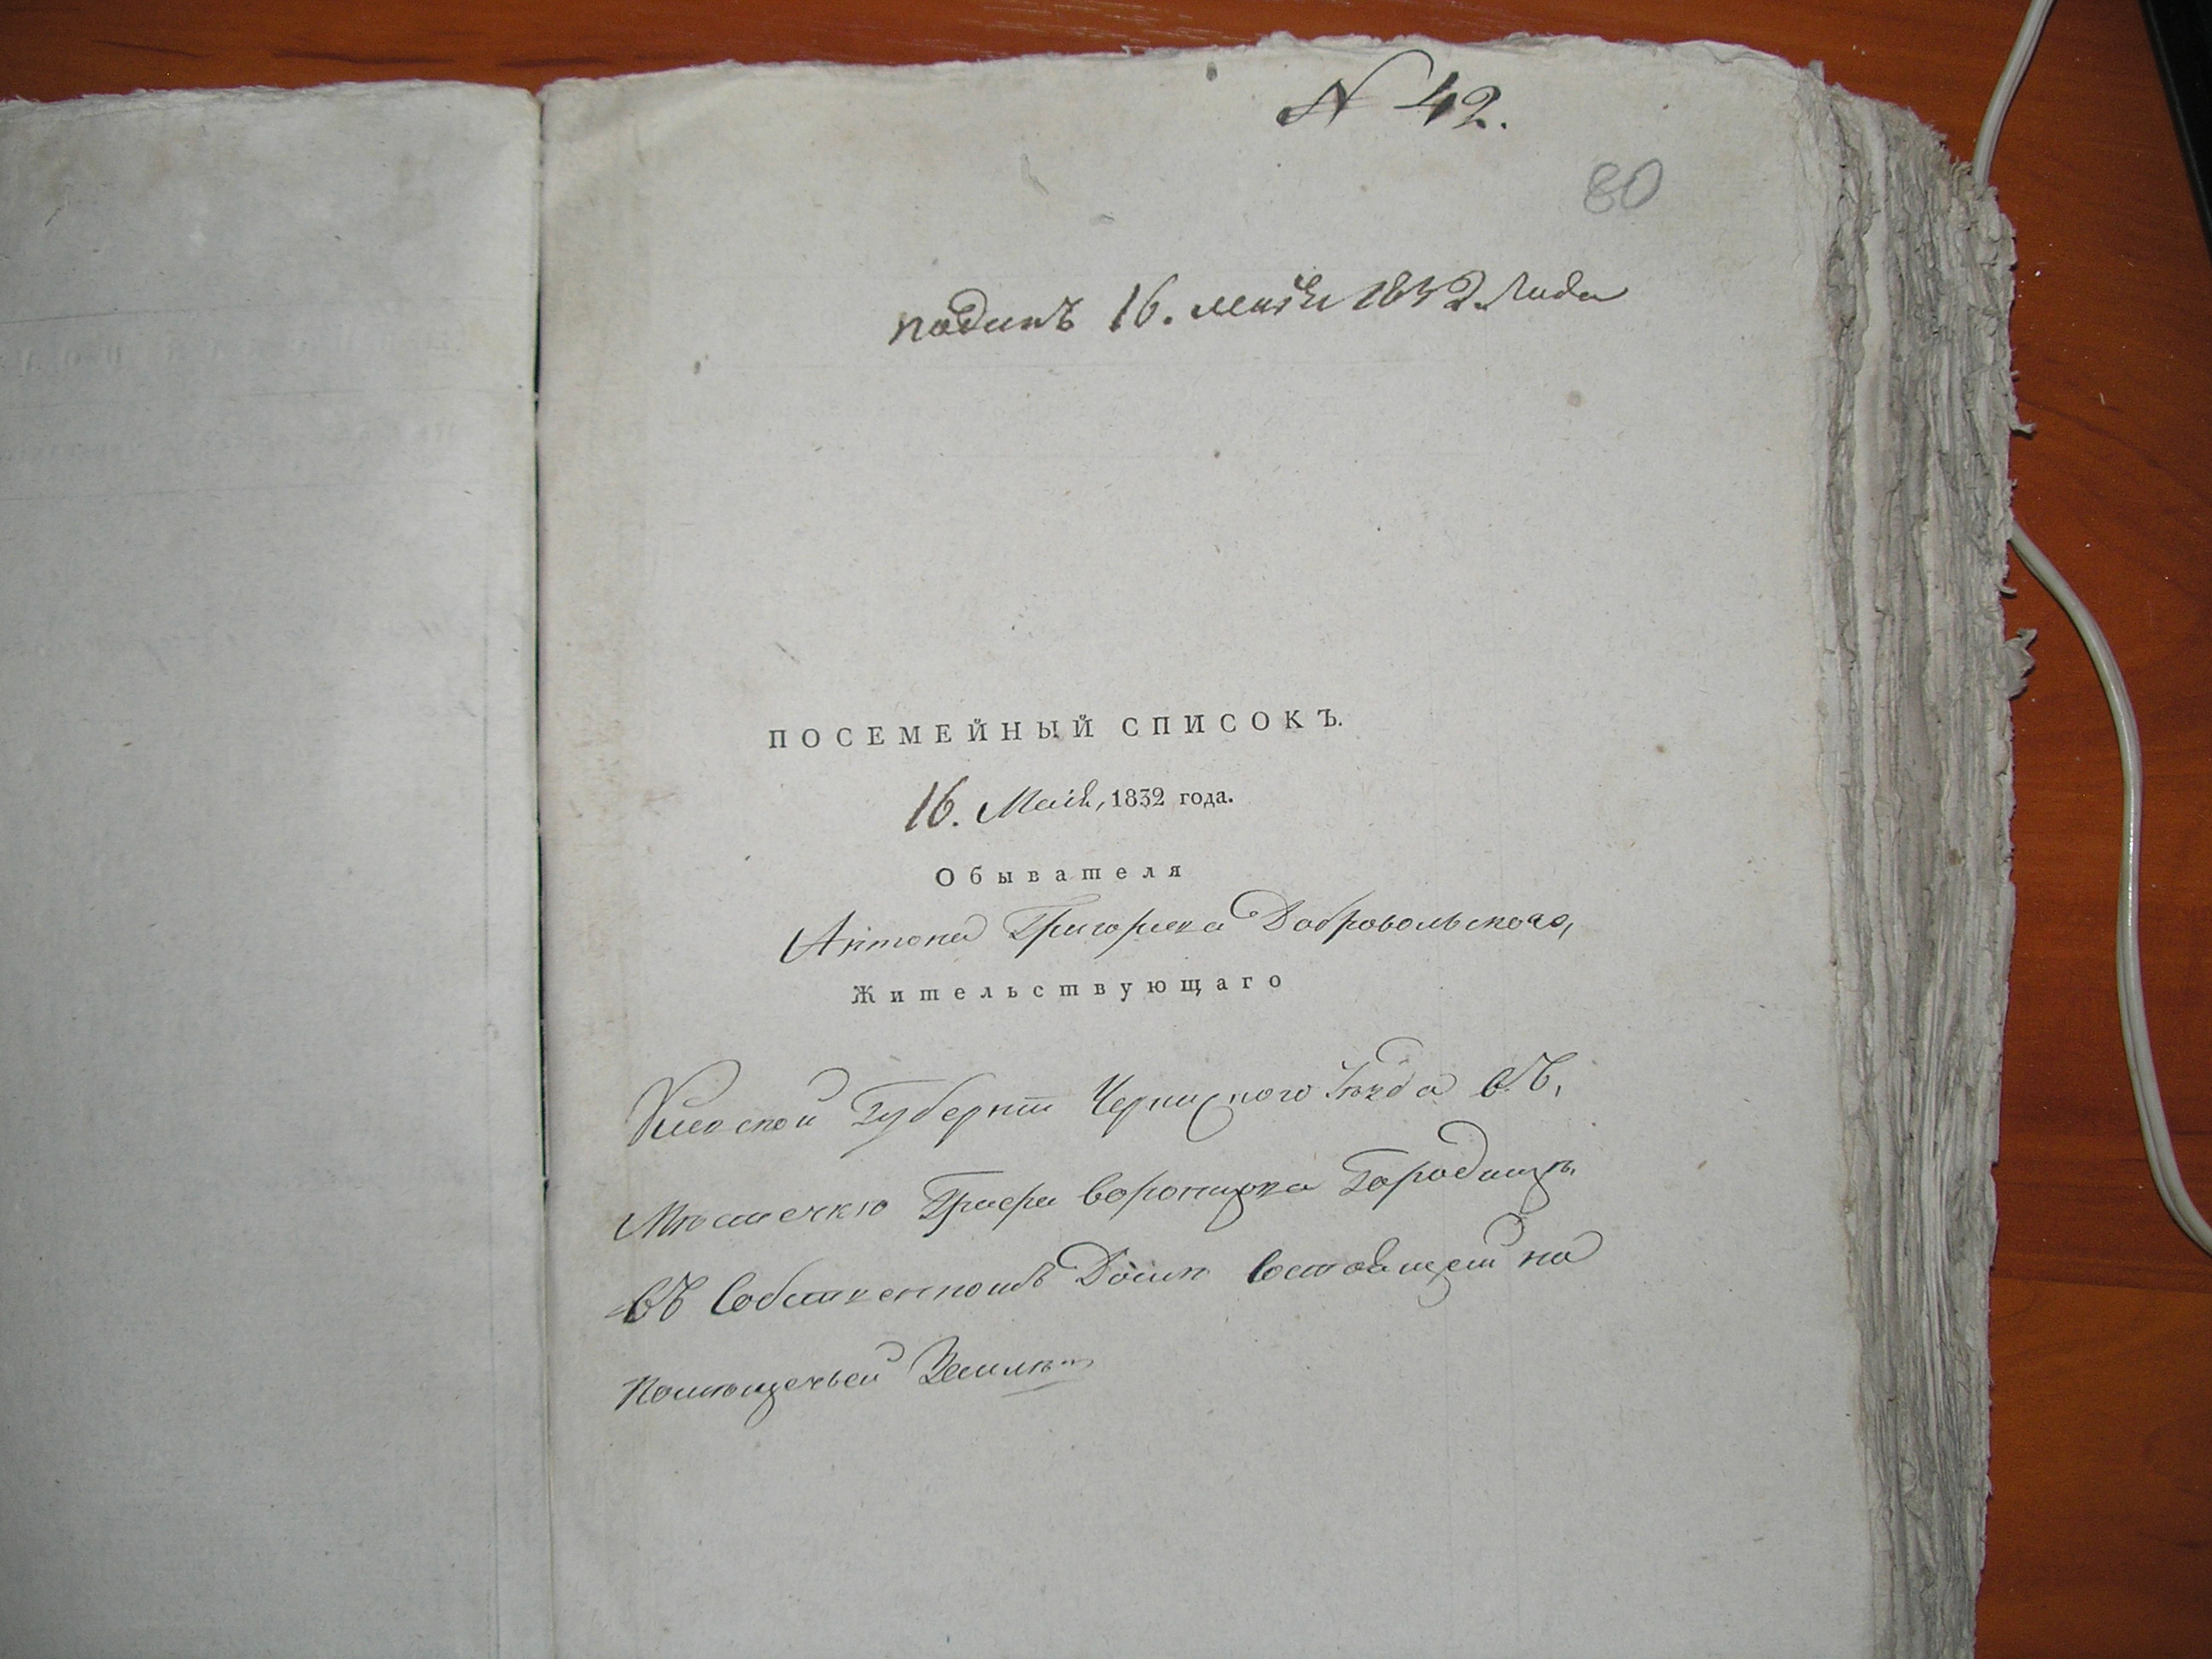 N 42.
80
поданъ 16. маія 1832 года
ПОСЕМЕЙНЫЙ СПИСОКЪ.
16. Маія, 1832 года.
Обывателя
Антона Григорьева Добровольскаго,
Жительствующаго
Киевской Губерніи Черкаскаго Уѣзда въ,
Мѣстечкѣ Графа Воронцова Городищѣ
въ Собственномъ Домѣ состоящем на
Помѣщечьей Землѣ